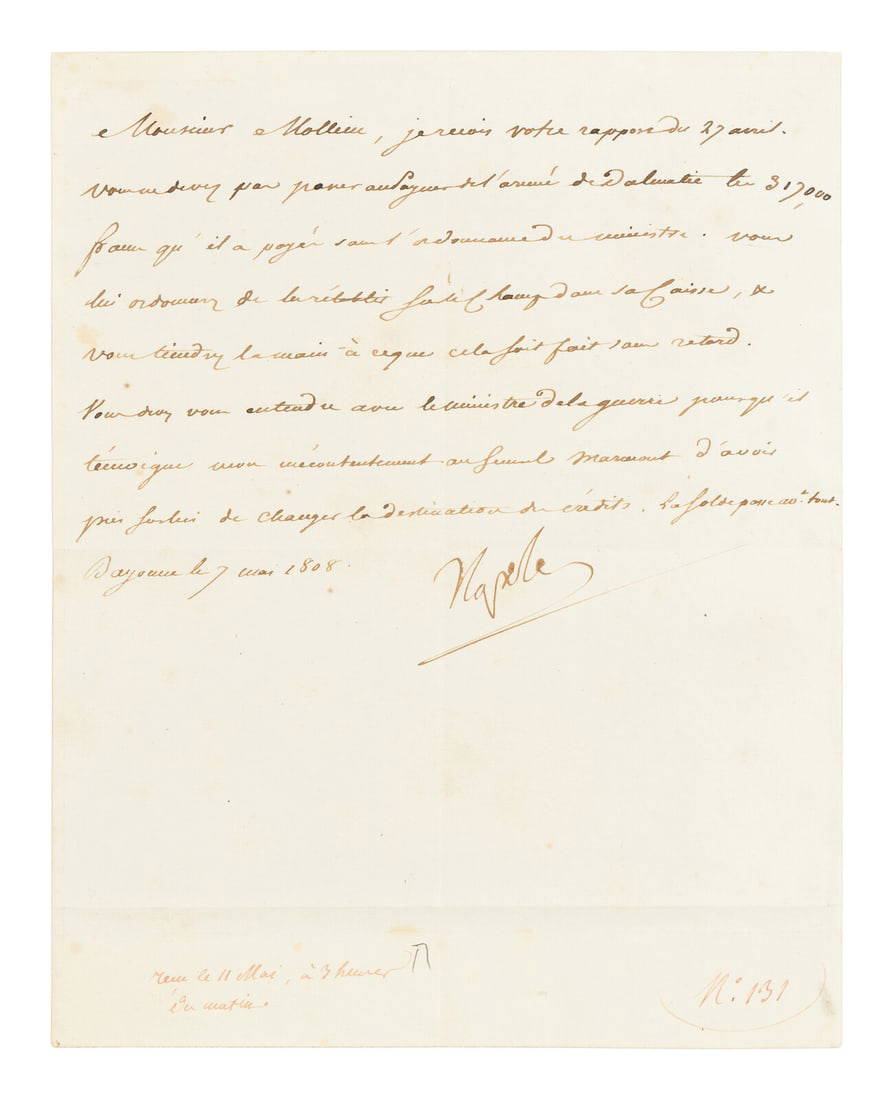 Monsieur Mollien, je reçois votre rapport du 27 avril.
Vous ne devez pas passer au Payeur de l'armée de Dalmatie les 317,000
francs qu'il a payés sans l'ordonnance du ministre. vous
lui ordonnerez de les rétablir sur le Champ dans sa Caisse, &
vous tiendrez la main à ce que cela soit fait sans retard.
Vous devez vous entendre avec le ministre de la guerre pour qu'il
témoigne mon mécontentement au General Marmont d'avoir
pris sur lui de changer la destination des crédits. La solde passe avt. tout.
Bayonne le 7 mai 1808.
Napole
reçu le 11 Mai, à 3 heures
du matin.
N.° 131